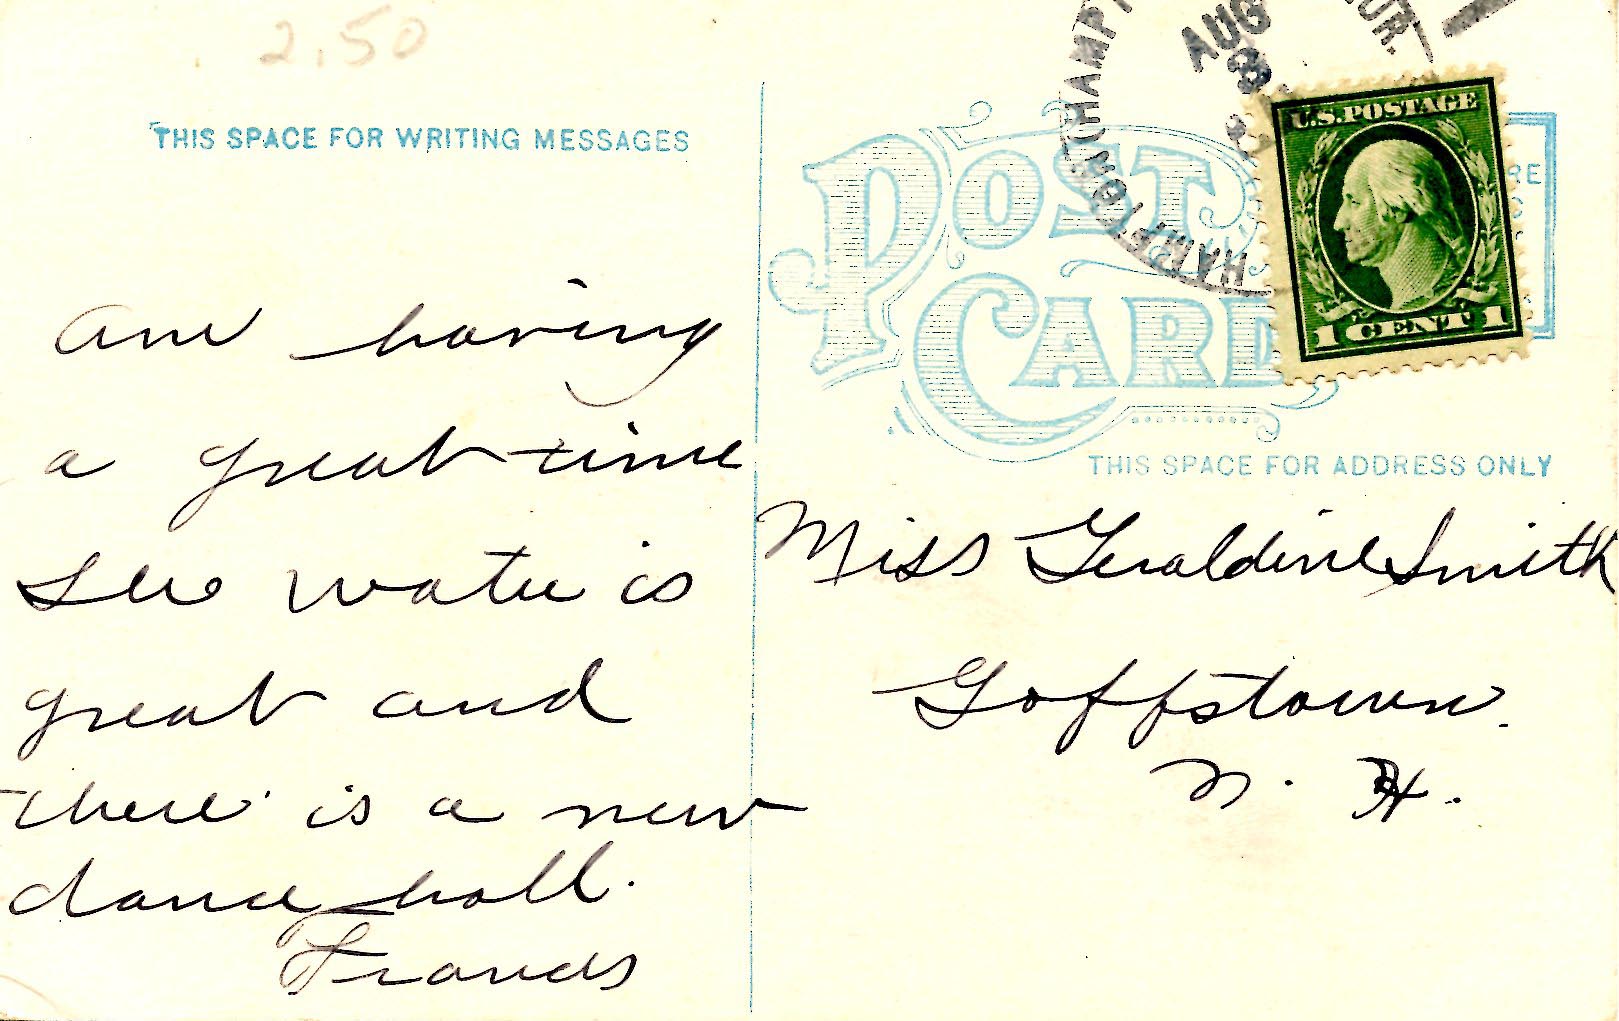 2.50
THIS SPACE FOR WRITING MESSAGES
am having
a great time
The water is
great and
there is a new
dance hall.
Frances
HAMPTON
HAMPT
AUG
U.S. POSTAGE
1 CENT 1
POST
CARD
THIS SPACE FOR ADDRESS ONLY
Miss Geraldine Smith
Goffstown.
N. H.